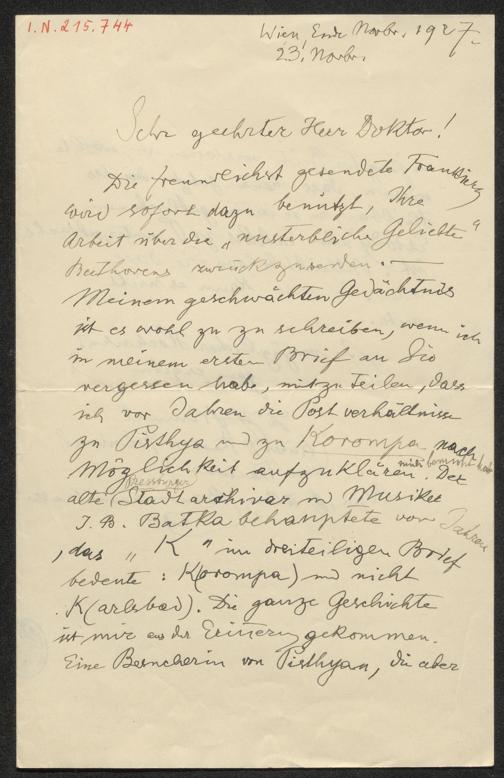 I.N. 215.744
Wien, Ende Novbr. 1927.
23. Novbr.
Sehr geehrter Herr Doktor!
Die freundlichst gesendete Frankierg
wird sofort dazu benützt, Ihre
Arbeit über die „unsterbliche Geliebte“
Beethovens zurückzusenden. —
Meinem geschwächten Gedächtnis
ist es wohl zu zu schreiben, wenn ich
in meinem ersten Brief an Sie
vergessen habe, mitzuteilen, dass
ich vor Jahren die Postverhältnisse
zu Pisthyan und zu Korompa nach
Möglichkeit aufzuklären mich bemüht habe. Der
alte Pressburger Stadtarchivar und Musiker
J. B. Batka behauptete vor Jahren
, das „K“ im dreiteiligen Brief
bedeute: K(orompa) und nicht
K(arlsbad). Die ganze Geschichte
ist mir aus der Erinnerg gekommen.
Eine Besucherin von Pisthyan, die aber